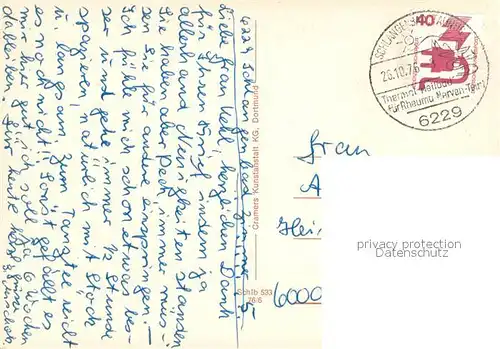 6229 Schlangenbad Zimmer 5.
Liebe Frau Kehl, herzlichen Dank
für Ihren Brief in dem ja
allerhand Neuigkeiten standen
Sie haben aber Pech, immer müs-
sen Sie für andere einspringen.–
Ich fühle mich schon etwas bes-
ser und gehe immer ½ Stunde
spazieren, natürlich mit Stock
u. langsam. Zum Tanztee reicht
es noch nicht! Sonst gefällt es
mir u. ich soll ja 6 Wochen
dableiben. Für heute herzl. Grüsse
Cramers Kunstanstalt KG, Dortmund
Schlb 533
76/6
SCHLANGENBAD
40
26.10.76
Thermal-Heilbad
für Rheuma Nerven
6229
Frau
A
Hei
6000
privacy protection
Datenschutz